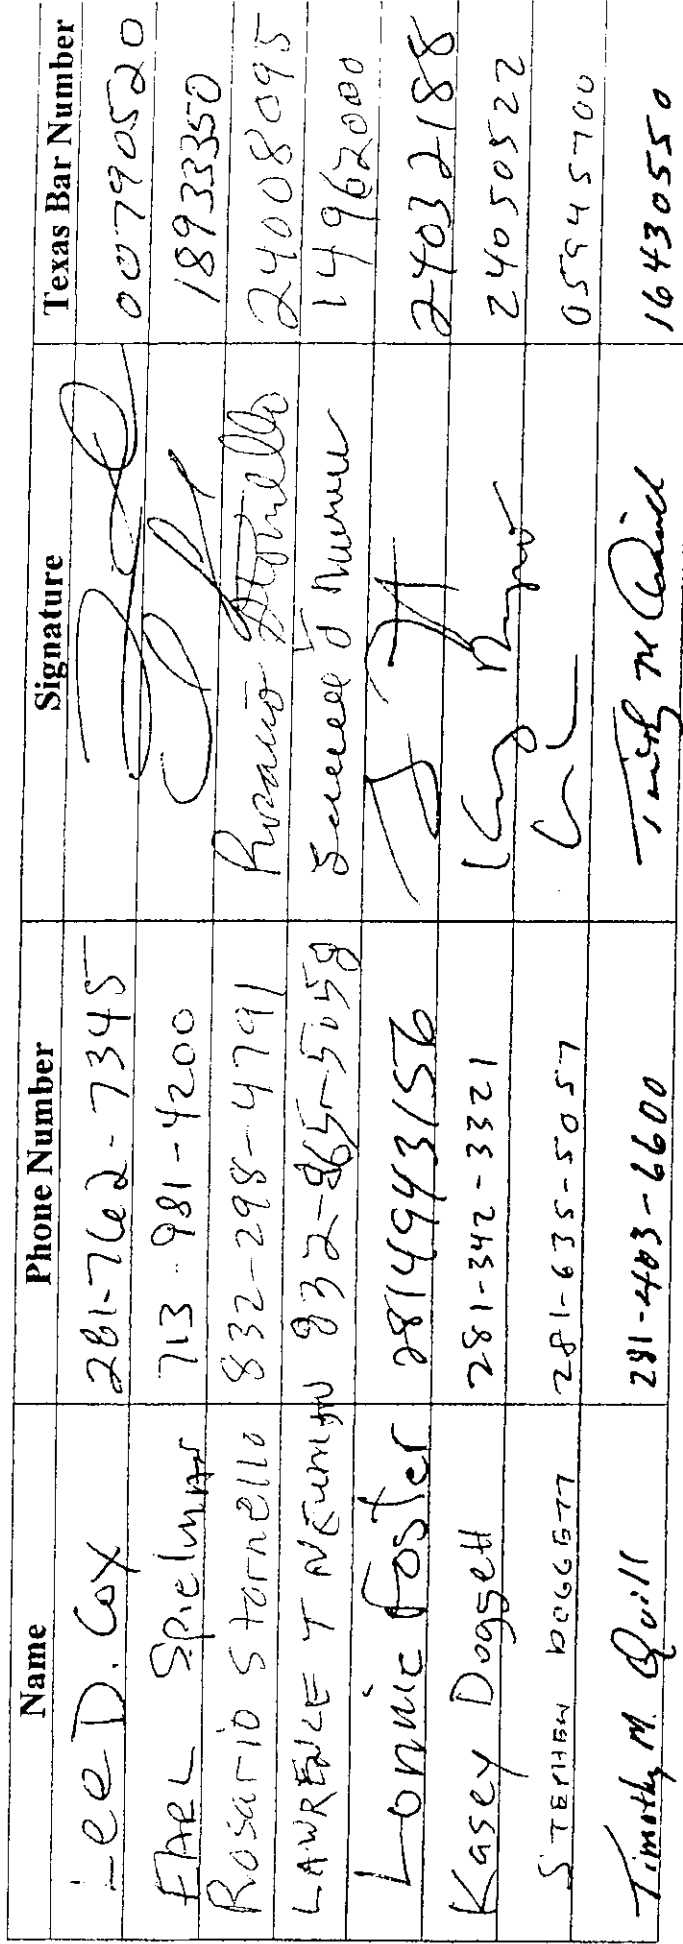 Name Phone Number Signature Texas Bar Number
Lee D. Cox 281-762-7345 00790520
EARL Spielman 713-981-4200 18933350
Rosario Stornello 832-298-4791 Rosario Stornello 24008095
LAWRENCE T NEWMAN 832-865-5058 14962000
Lonnie Foster 2814943156 24032188
Kasey Doggett 281-342-3321 24050522
STEPHEN DOGGETT 281-635-5057 05945700
Timothy M. Quill 281-403-6600 16430550